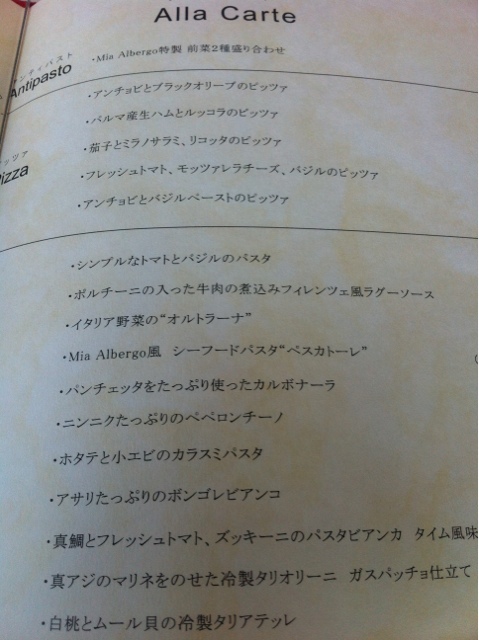 Alla Carte
アンティパスト
Antipasto
・Mia Albergo特製 前菜2種盛り合わせ
・アンチョビとブラックオリーブのピッツァ
・パルマ産生ハムとルッコラのピッツァ
ッツァ
izza
・茄子とミラノサラミ、リコッタのピッツァ
・フレッシュトマト、モッツァレラチーズ、バジルのピッツァ
・アンチョビとバジルペーストのピッツァ
・シンプルなトマトとバジルのパスタ
・ポルチーニの入った牛肉の煮込みフィレンツェ風ラグーソース
・イタリア野菜の“オルトラーナ”
・Mia Albergo風 シーフードパスタ“ペスカトーレ”
・パンチェッタをたっぷり使ったカルボナーラ
・ニンニクたっぷりのペペロンチーノ
・ホタテと小エビのカラスミパスタ
・アサリたっぷりのボンゴレビアンコ
・真鯛とフレッシュトマト、ズッキーニのパスタビアンカ タイム風味
・真アジのマリネをのせた冷製タリオリーニ ガスパッチョ仕立て
・白桃とムール貝の冷製タリアテッレ